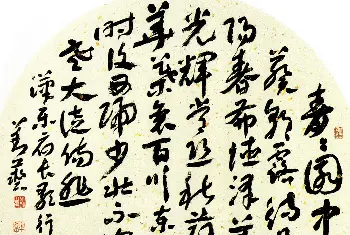 青々園中
葵朝露待
陽春布德澤萬
光輝常恐秋節
華葉衰百川東
時復西歸少壯不
老大徒傷悲
漢樂府長歌行